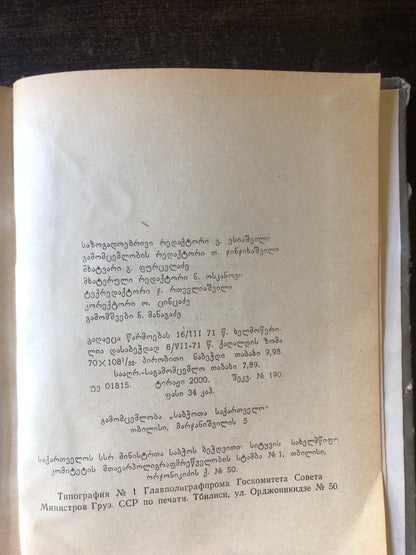 საზოგადოებრივი რედაქტორი გ. ესიაშვილი
გამომცემლობის რედაქტორი თ. ჯინჯიხაშვილი
მხატვარი გ. ფურცელაძე
მხატვრული რედაქტორი ნ. ოსკანოვი
ტექრედაქტორი ჯ. რთველიაშვილი
კორექტორი ო. ცინცაძე
გამომშვები ნ. მანაგაძე
გადაეცა წარმოებას 16/III 71 წ. ხელმოწერი-
ლია დასაბეჭდად 8/VII-71 წ. ქაღალდის ზომა
70×108¹/₃₂. პირობითი ნაბეჭდი თაბახი 9,98.
სააღრ.-საგამომცემლო თაბახი 7,89.
უე 01815. ტირაჟი 2000. შეკვ. № 190.
ფასი 34 კაპ.
გამომცემლობა „საბჭოთა საქართველო“
თბილისი, მარჯანიშვილის 5
საქართველოს სსრ მინისტრთა საბჭოს ბეჭდვითი სიტყვის სახელმწიფო
კომიტეტის მთავარპოლიგრაფმრეწველობის სტამბა № 1, თბილისი,
ორჯონიკიძის ქ. № 50.
Типография № 1 Главполиграфпрома Госкомитета Совета
Министров Груз. ССР по печати. Тбилиси, ул. Орджоникидзе № 50.